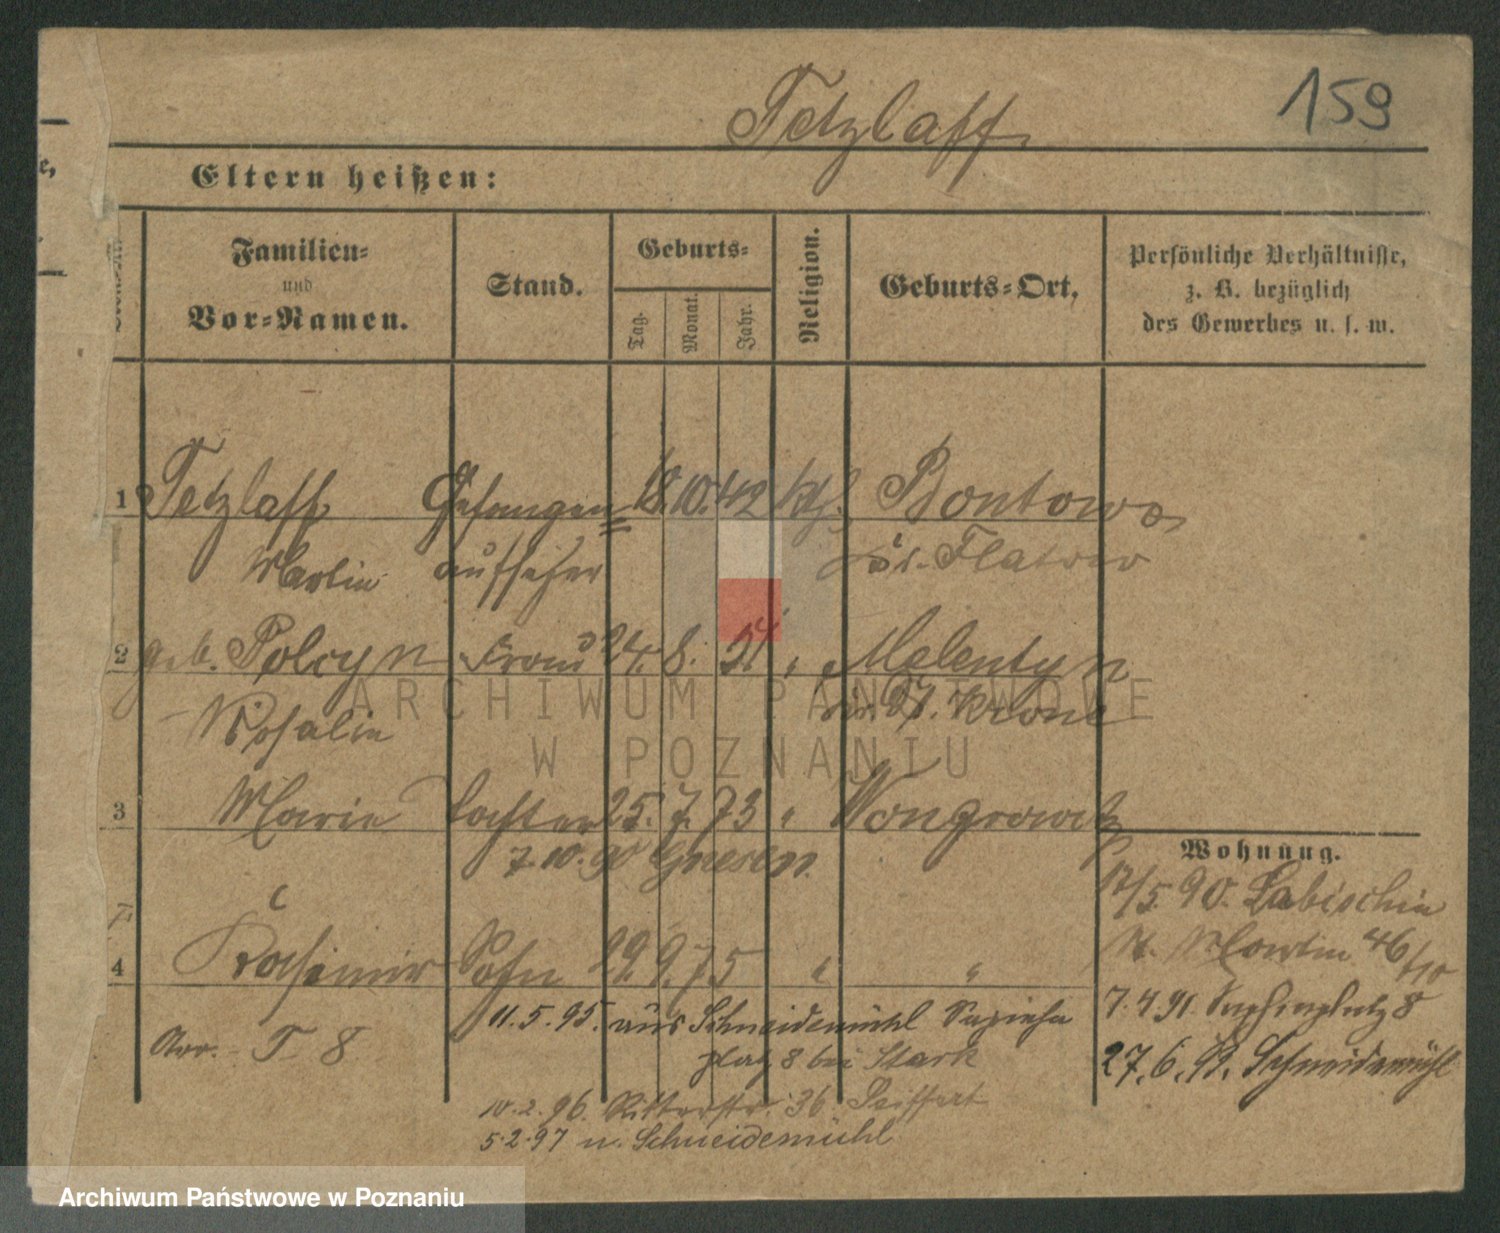 Tetzlaff 159
Eltern heißen:
Familien- und Vor-Namen. Stand. Geburts- Tag. Monat. Jahr. Religion. Geburts-Ort, Persönliche Verhältnisse, z. B. bezüglich des Gewerbes u. s. w.
1 Tetzlaff Gefangen= 18. 10. 42 kth. Bontowo
Martin aufseher Kr. Flatow
2 geb. Polcyn Frau 24. 8. " Melentyn
Rosalie Kr. Dt. Krone
ARCHIWUM PAŃSTWOWE
W POZNANIU
3 Marie Tochter 25. 7. 73 " Wongrowitz
7.10.90 Gnesen
Wohnung.
17/5 90. Labischin
4 Kasimir Sohn 29. 9. 75 " "
St. Martin 46/10
7.4.91. Sapiehaplatz 8
27.6.91. Schneidemühl
T 8
11.5.95. aus Schneidemühl Sapieha
platz 8 bei Stark
10.2.96. Ritterstr. 36 Seiffert
5.2.97 n. Schneidemühl
Archiwum Państwowe w Poznaniu